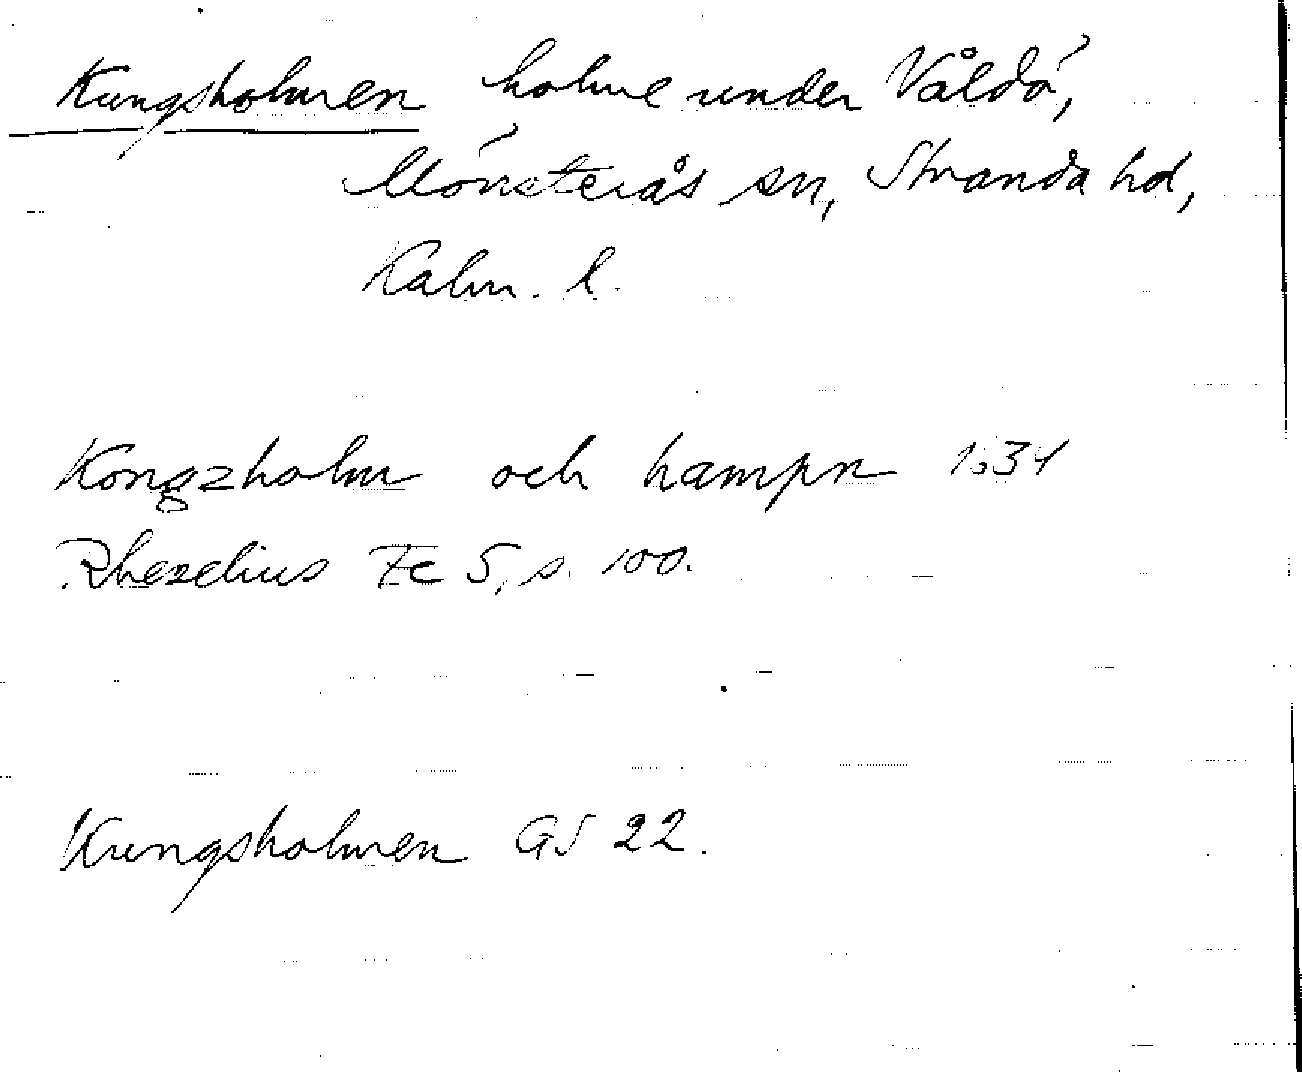 Kungsholmen holme under Våldö,
Mönsterås sn, Stranda hd,
Kalm. l.
Kongzholm och hampn 1634
Rhezelius Fc 5, s. 100.
Kungsholmen GS 22.